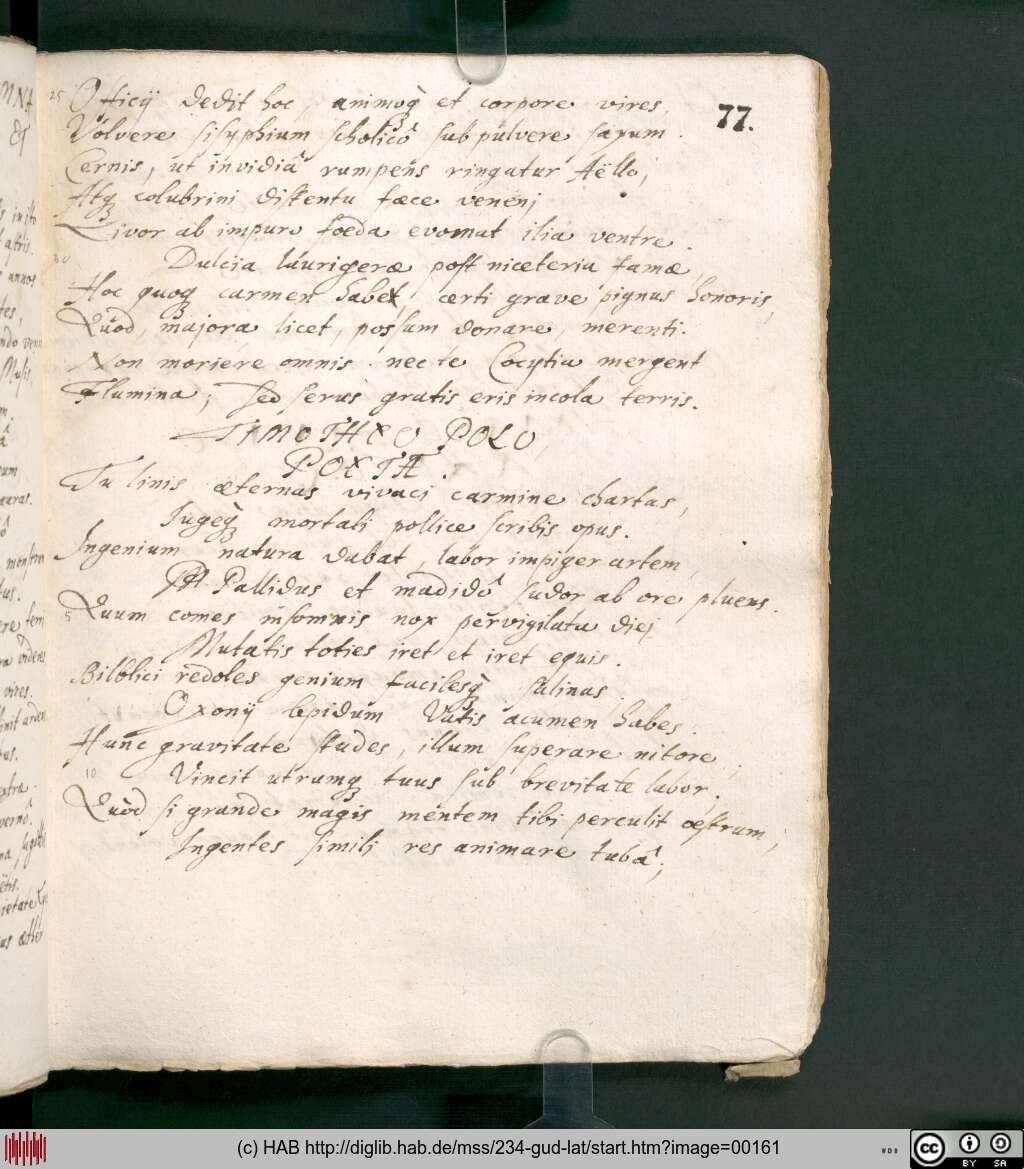 77.
25 Officij dedit hoc, animoq̀ et corpore vires,
Volvere sisyphium scholicô sub pulvere saxum.
Cernis, ut invidiâ rumpens ringatur Aëllo,
Atq colubrini distentu fæce veneni
Livor ab impuro foeda evomat ilia ventre.
30 Dulcia laurigeræ post niceteria famæ,
Hoc quoq carmen habe, certi grave pignus honoris,
Quod, majora licet, possum donare, merenti.
Non moriere omnis. nec te Cocytia mergent
Flumina; sed serus gratis eris incola terris.
TIMOTHEO POLO,
POETÆ.
Tu linis æternas vivaci carmine chartas,
Jugeq̀ mortali pollice scribis opus.
Ingenium natura dabat, labor impiger artem,
Pallidus et madidô sudor ab ore pluens.
5 Quum comes insomnis nox pervigilata diei
Mutatis toties iret et iret equis.
Bilbilici redoles genium facilesq̀ salinas,
Oxonij lepidum Vatis acumen habes.
Hunc gravitate studes, illum superare nitore,
10 Vincit utrumq tuus sub brevitate labor.
Quòd si grande magis mentem tibi perculit œstrum,
Ingentes simili res animare tubâ;
(c) HAB http://diglib.hab.de/mss/234-gud-lat/start.htm?image=00161
WDB
cc
BY SA